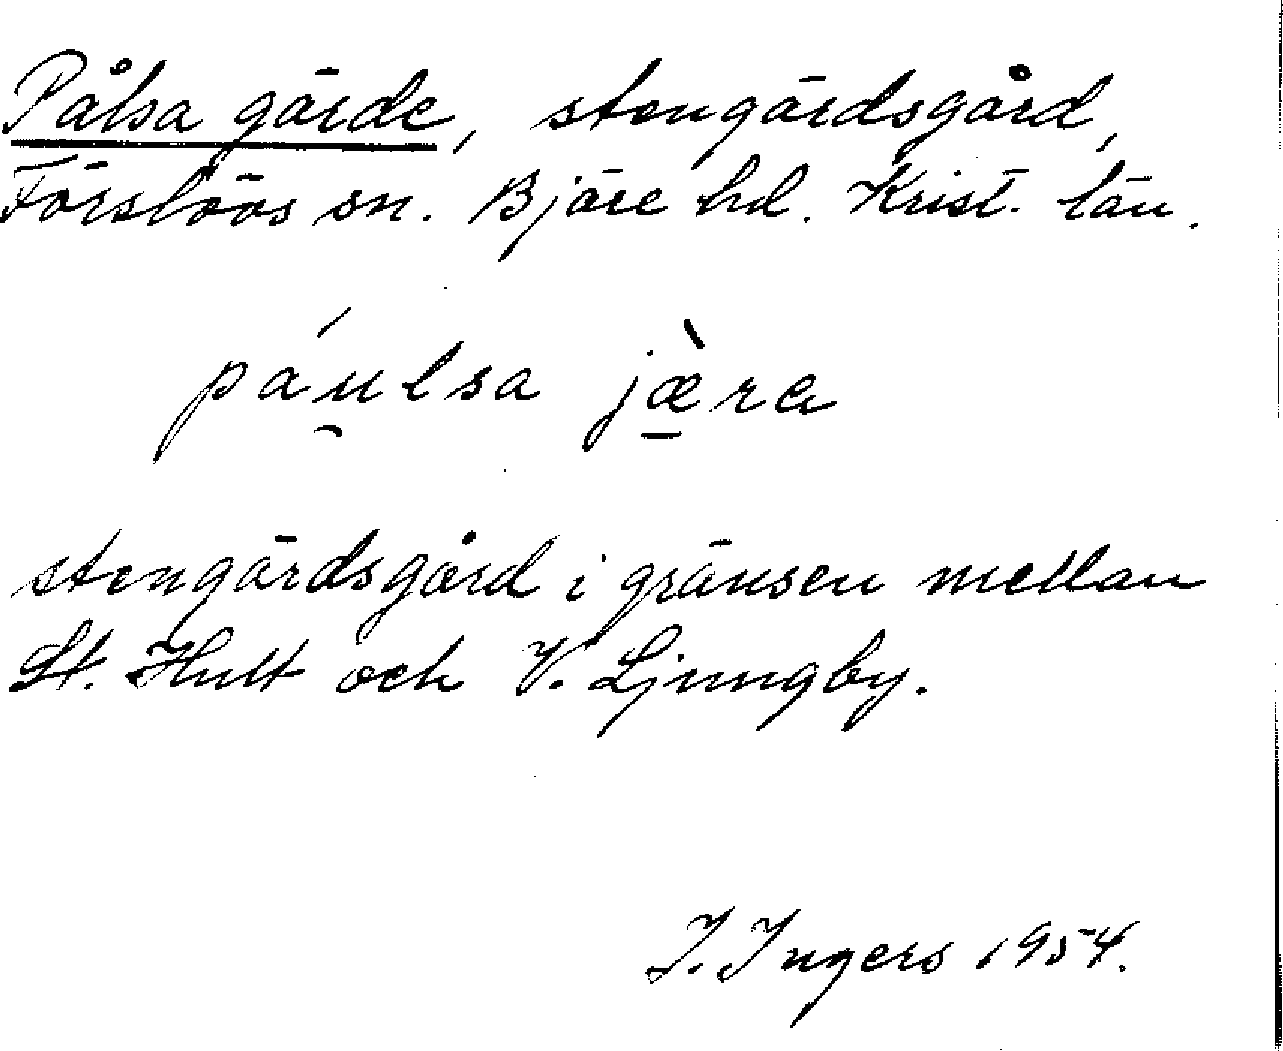 Pålsa gärde, stengärdsgård,
Förslövs sn. Bjäre hd. Krist. län.
páu̯lsa jæ̱̀ra
stengärdsgård i gränsen mellan
St. Hult och V. Ljungby.
I. Ingers 1954.